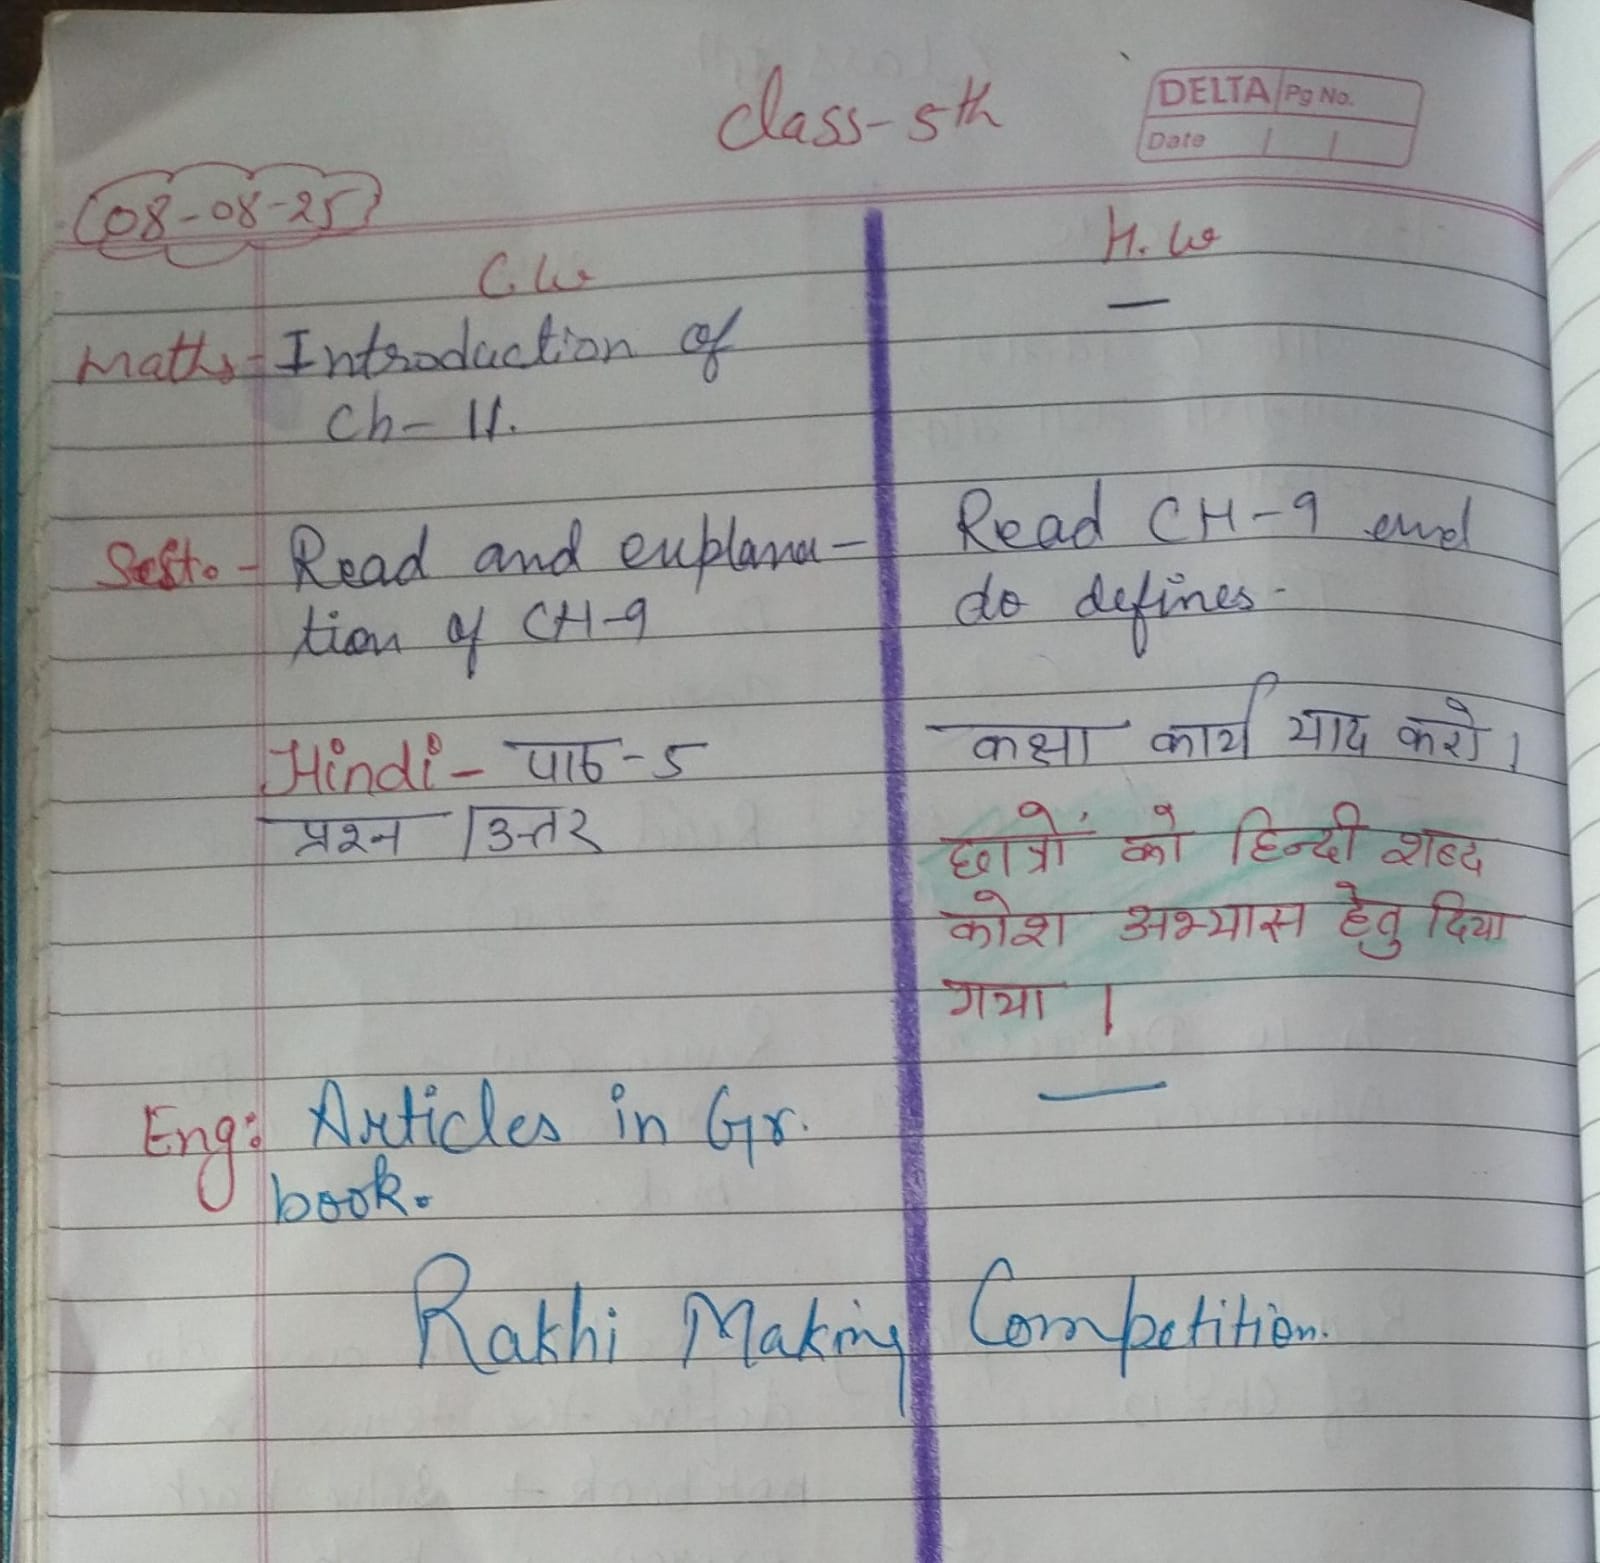 class-5th
DELTA Pg No.
Date
08-08-25
C.W
H.W
Maths- Introduction of
—
Ch- 11.
Read and euplana-
Read CH-9 and
tion of CH-9
do defines-
Hindi- पाठ-5
कक्षा कार्य याद करो।
प्रश्न / उत्तर
छात्रों को हिन्दी शब्द
कोश अभ्यास हेतु दिया
गया ।
Eng: Articles in Gr.
—
book.
Rakhi Making Competition.